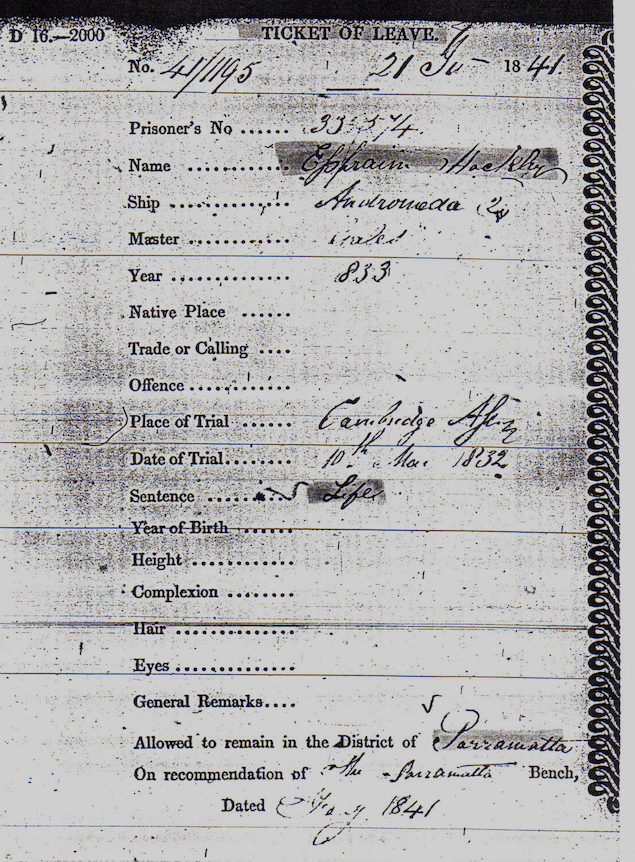 D 16.—2000 TICKET OF LEAVE.
No. 41/1195 21 1841
Prisoner's No ...... 33-574
Name ............ Ephraim
Ship ............ Andromeda 2
Master ............
Year ............ 833
Native Place ......
Trade or Calling ....
Offence ............
Place of Trial ...... Cambridge
Date of Trial...... 10th Mar 1832
Sentence ........ Life
Year of Birth ......
Height ............
Complexion ........
Hair ............
Eyes ............
General Remarks....
Allowed to remain in the District of Parramatta
On recommendation of the Parramatta Bench,
Dated 1841